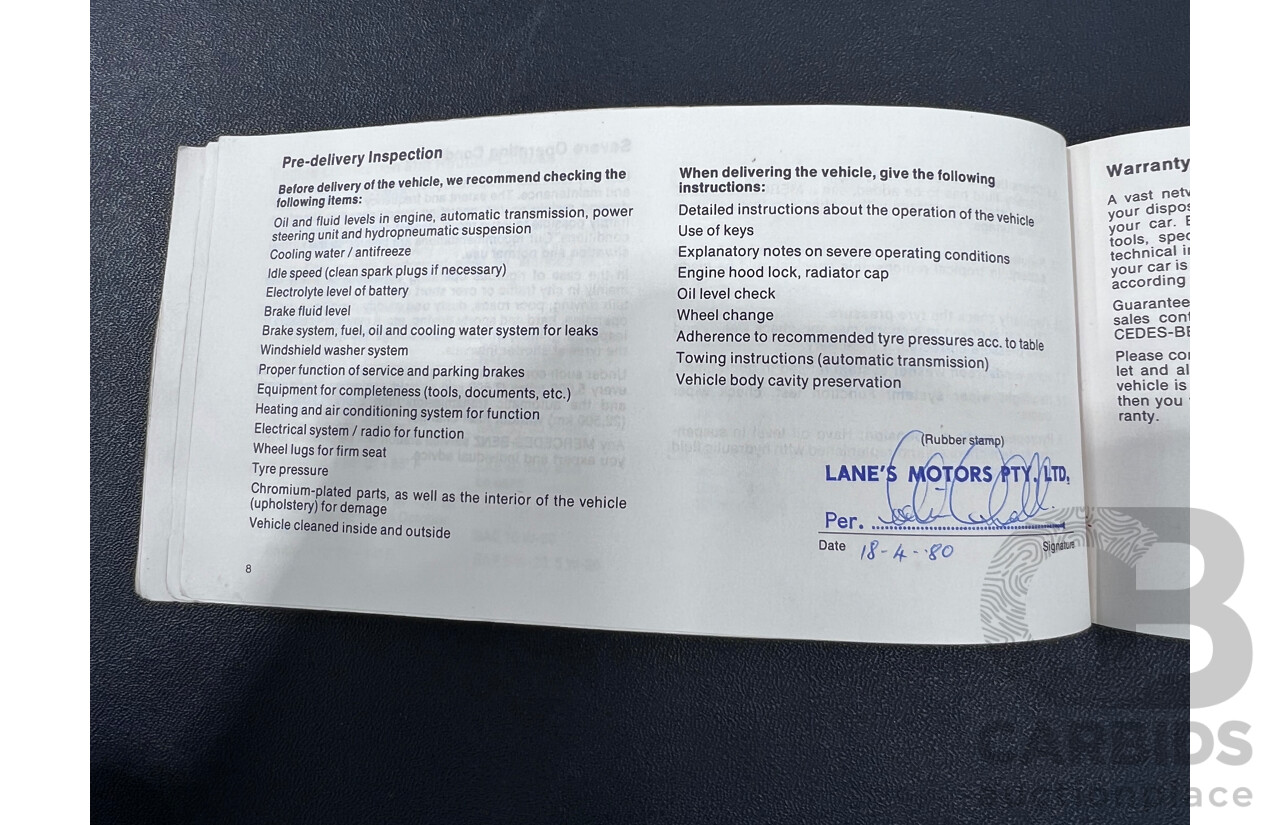 Pre-delivery Inspection
Before delivery of the vehicle, we recommend checking the
following items:
Oil and fluid levels in engine, automatic transmission, power
steering unit and hydropneumatic suspension
Cooling water / antifreeze
Idle speed (clean spark plugs if necessary)
Electrolyte level of battery
Brake fluid level
Brake system, fuel, oil and cooling water system for leaks
Windshield washer system
Proper function of service and parking brakes
Equipment for completeness (tools, documents, etc.)
Heating and air conditioning system for function
Electrical system / radio for function
Wheel lugs for firm seat
Tyre pressure
Chromium-plated parts, as well as the interior of the vehicle
(upholstery) for demage
Vehicle cleaned inside and outside
8
When delivering the vehicle, give the following
instructions:
Detailed instructions about the operation of the vehicle
Use of keys
Explanatory notes on severe operating conditions
Engine hood lock, radiator cap
Oil level check
Wheel change
Adherence to recommended tyre pressures acc. to table
Towing instructions (automatic transmission)
Vehicle body cavity preservation
(Rubber stamp)
LANE'S MOTORS PTY. LTD.
Per.
Date 18-4-80 Signature
Warranty
A vast netw
your dispos
your car. E
tools, spec
technical in
your car is
according
Guarantee
sales cont
CEDES-BE
Please con
let and al
vehicle is
then you
ranty.
CB
CARBIDS
auctionplace